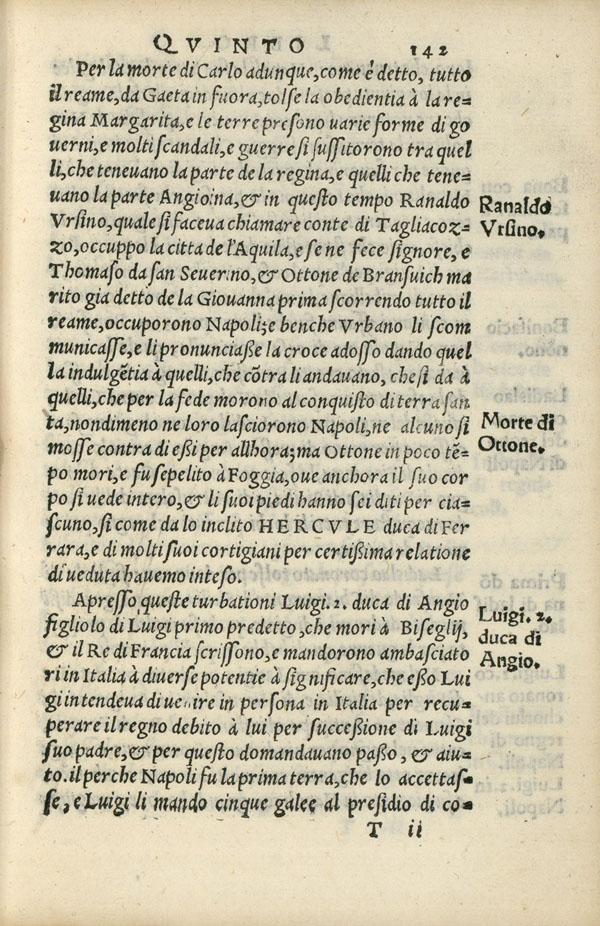 QVINTO 142
Per la morte di Carlo adunque, come è detto, tutto
il reame, da Gaeta in fuora, tolse la obedientia à la re-
gina Margarita, e le terre presono uarie forme di go
uerni, e molti scandali, e guerre si sussitorono tra quel
li, che teneuano la parte de la regina, e quelli che tene-
uano la parte Angioina, & in questo tempo Ranaldo
Vrsino, quale si faceua chiamare conte di Tagliacoz-
zo, occuppo la citta de l'Aquila, e se ne fece signore, e
Thomaso da san Seuerino, & Ottone de Bransuich ma
rito gia detto de la Giouanna prima scorrendo tutto il
reame, occuporono Napoli; e benche Vrbano li scom
municasse, e li pronunciasse la croce adosso dando quel
la indulgẽtia à quelli, che cõtra li andauano, che si da à
quelli, che per la fede morono al conquisto di terra san
ta, nondimeno ne loro lasciorono Napoli, ne alcuno si
mosse contra di essi per allhora; ma Ottone in poco tẽ-
po mori, e fu sepelito à Foggia, oue anchora il suo cor
po si uede intero, & li suoi piedi hanno sei diti per cia-
scuno, si come da lo inclito HERCVLE duca di Fer
rara, e di molti suoi cortigiani per certissima relatione
di ueduta hauemo inteso.
Apresso queste turbationi Luigi. 2. duca di Angio
figliolo di Luigi primo predetto, che mori à Biseglij,
& il Re di Francia scrissono, e mandorono ambasciato
ri in Italia à diuerse potentie à significare, che esso Lui
gi intendeua di uenire in persona in Italia per recu-
perare il regno debito à lui per successione di Luigi
suo padre, & per questo domandauano passo, & aiu-
to. il perche Napoli fu la prima terra, che lo accettas-
se, e Luigi li mando cinque galee al presidio di co-
T ii
Ranaldo
Vrsino.
Morte di
Ottone.
Luigi. 2.
duca di
Angio.